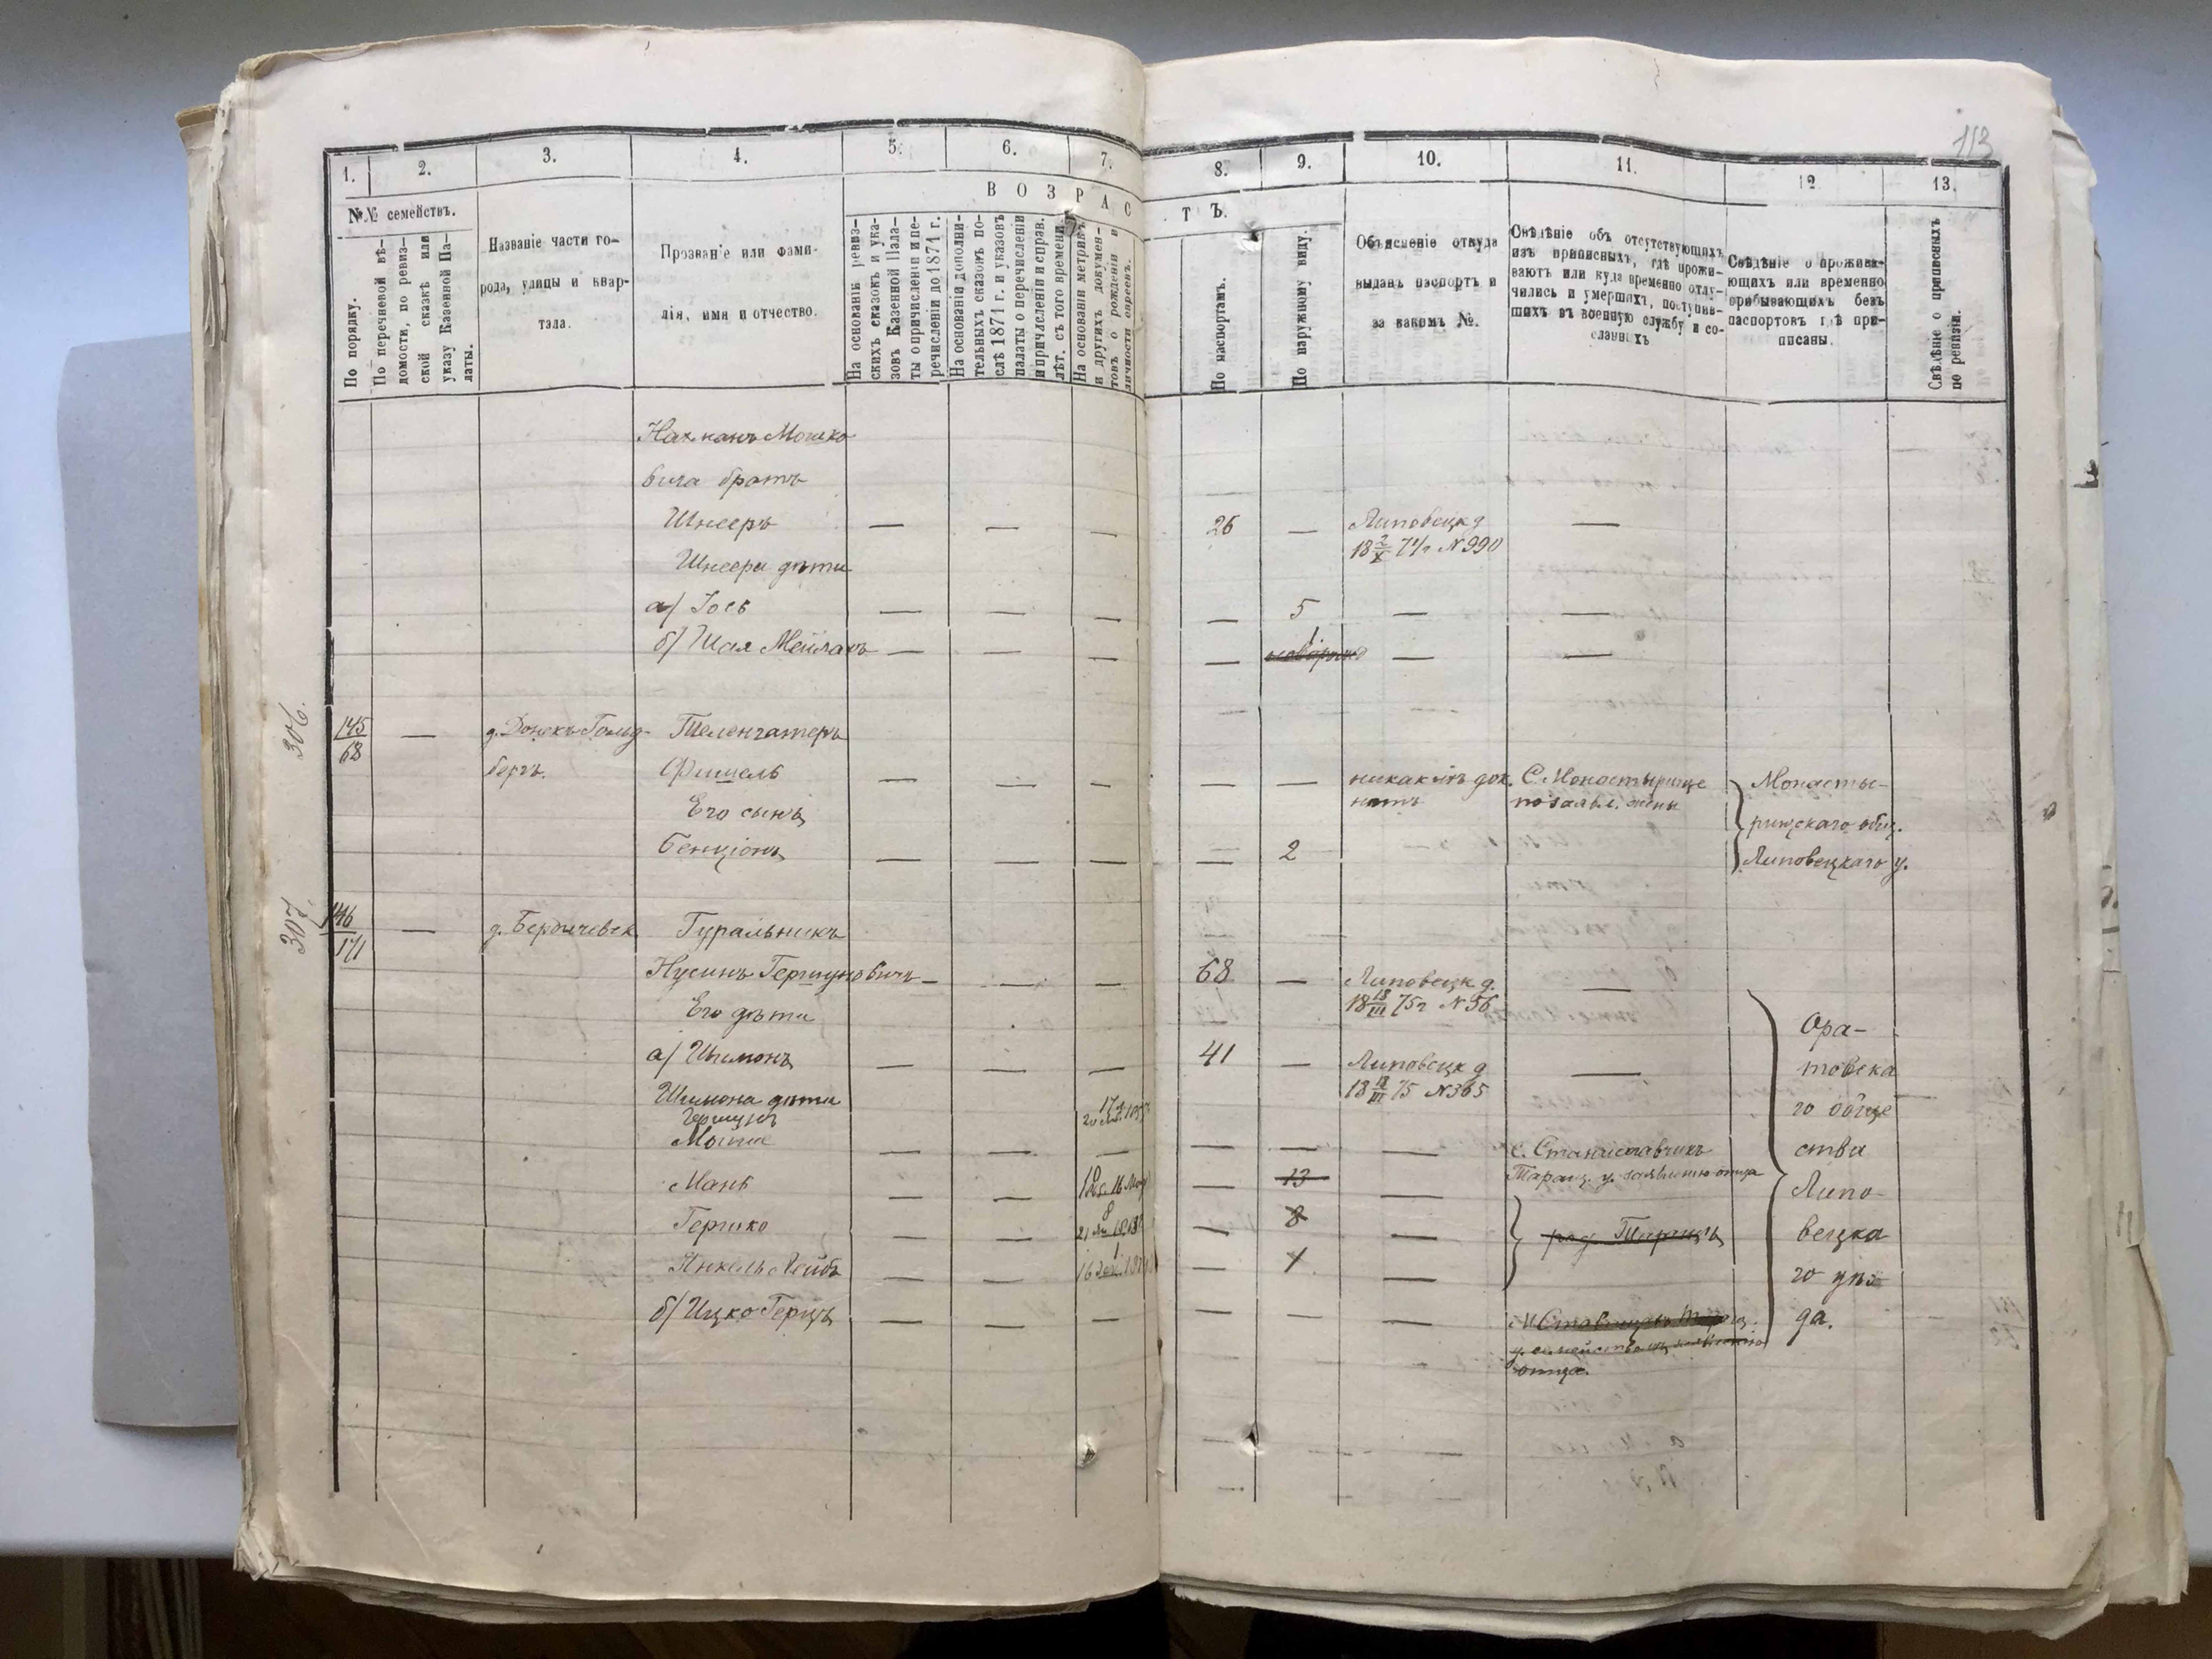 113
1.
2.
3.
4.
5.
6.
7.
8.
9.
10.
11.
12
13.
№№ семействъ.
По порядку.
По перечневой вѣ-
домости, по ревиз-
ской сказкѣ или
указу Казенной Па-
латы.
Названіе части го-
рода, улицы и квар-
тала.
Прозваніе или фами-
лія, имя и отчество.
ВОЗРАСТЪ.
На основаніи ревиз-
скихъ сказокъ и ука-
зовъ Казенной Пала-
ты о причисленіи и пе-
речисленіи до 1871 г.
На основаніи дополни-
тельныхъ сказокъ по-
слѣ 1871 г. и указовъ
палаты о перечисленіи
и причисленіи и справ.
лѣт. съ того времени.
На основаніи метрикъ
и другихъ докумен-
товъ о рожденіи и
личности евреевъ.
По паспортамъ.
По наружному виду.
Объясненіе откуда
выданъ паспортъ и
за какимъ №.
Свѣдѣніе объ отсутствующихъ
изъ приписныхъ, гдѣ прожи-
ваютъ или куда временно отлу-
чились и умершихъ, поступив-
шихъ въ военную службу и со-
сланныхъ
Свѣдѣніе о прожива-
ющихъ или временно
прибывающихъ безъ
паспортовъ гдѣ при-
писаны.
Свѣдѣніе о приписныхъ
по ревизіи.
Нахманъ Мошко
вича братъ
Шнееръ — — — 26 — Липовецк д
18 2/X 74г N 990 —
Шнеера дѣти
а/ Іось — — — — 5 — —
б/ Шая Мейлахъ — — — — 1 — —
306.
145/68 — д. Донекъ Гольд- Теленгатеръ
бергъ. Фишель — — — — — никакихъ док. С. Монастырище Монасты-
нѣтъ по заявл. жены
Его сынъ рищскаго общ.
Бенціонъ — — — — 2 Липовецкаго у.
307.
146/171 — д. Бердичевск Гуральникъ
Нусинъ Гершуновичъ — — — 68 — Липовецк д. —
18 18/III 75г N 56
Его дѣти Ора-
а/ Шимонъ — — — 41 — Липовецк д —
18 18/III 75 N 365 товска
Шимона дѣти го обще
Гершунъ 17
Мошие — — — — — — с. Станиславчикъ ства
Таращ. у. заявленію отца
Мань — — — 13 — Липо-
Гершко — — 8 — 8 — вецка
Янкель Лейбъ — — 1 — 1 — го уѣз-
б/ Ицко Герцъ — — — — — — да.
отца.